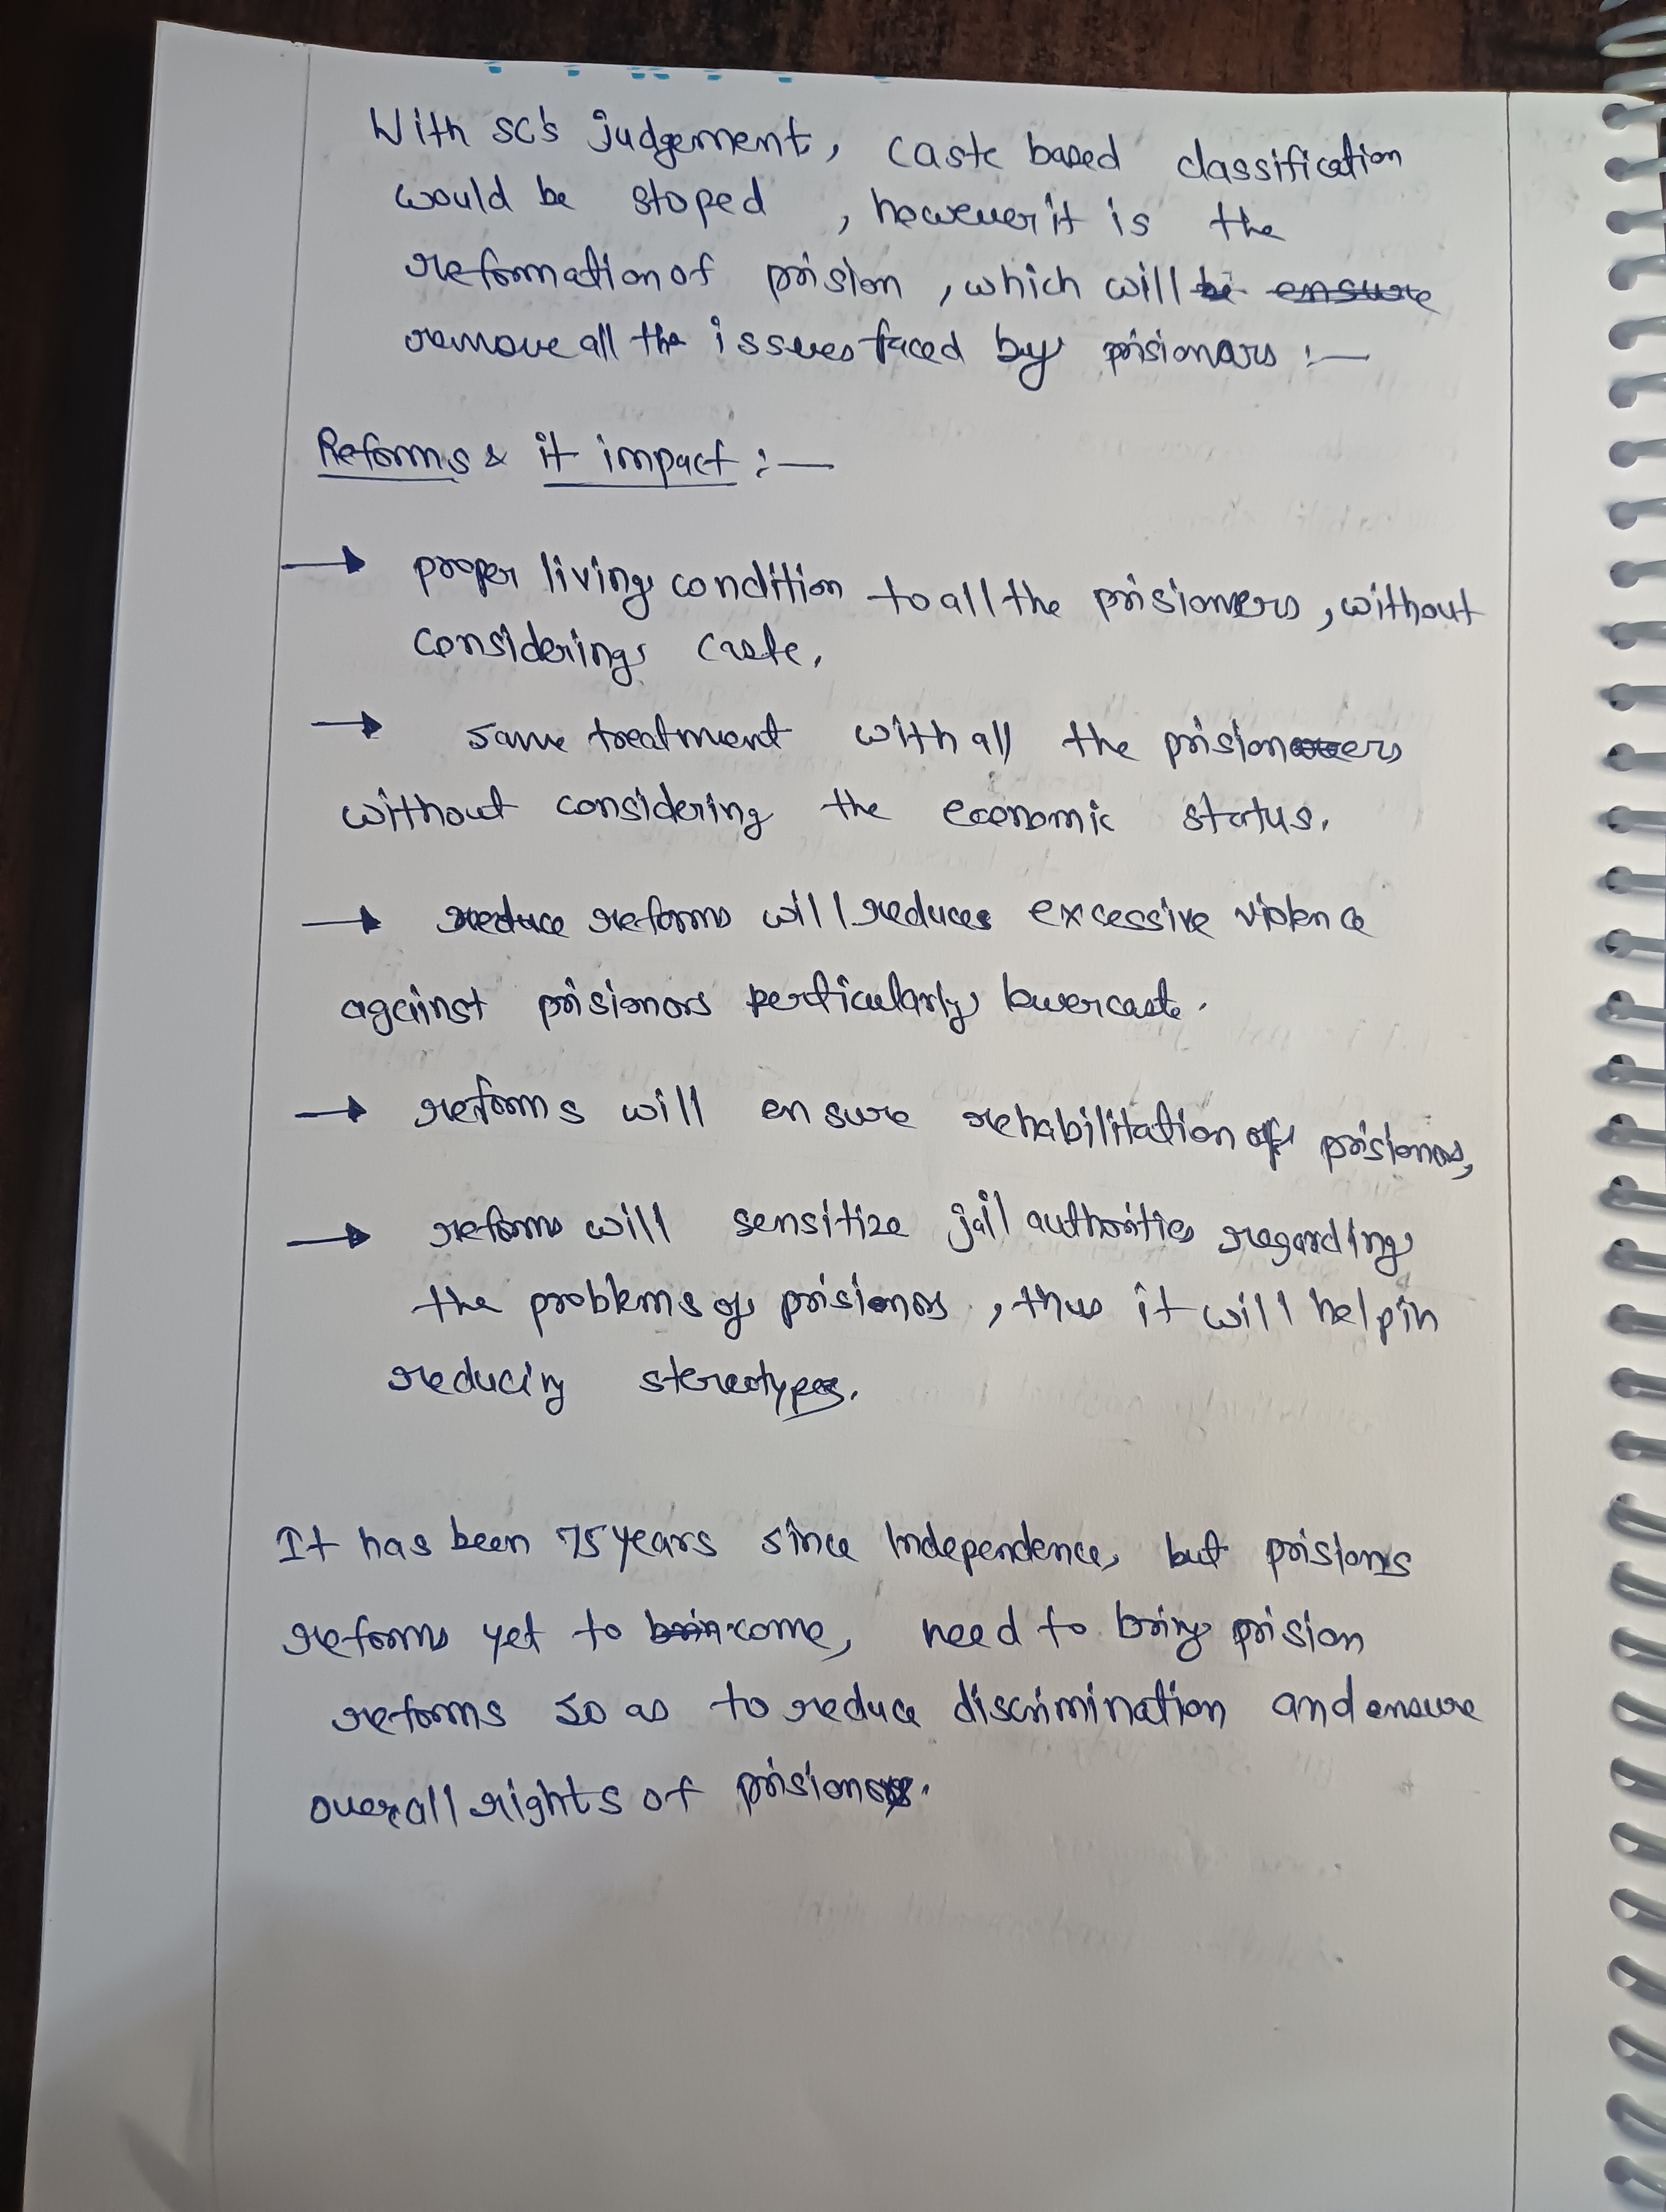 With SC's judgement, caste based classification
would be stoped , however it is the
reformation of prision , which will be ensure
remove all the issues faced by prisionars :—
Reforms & it impact :—
→ proper living condition to all the prisioners , without
considering caste.
→ same treatment with all the prisioners
without considering the economic status.
→ reduce reforms will reduces excessive violence
against prisionors perticularly lowercaste.
→ reforms will ensure rehabilitation of prisionors,
→ reforms will sensitize jail authorities regarding
the problems of prisionors , thus it will help in
reducing stereotypes.
It has been 75 years since Independence, but prisions
reforms yet to come, need to bring prision
reforms so as to reduce discrimination and ensure
overall rights of